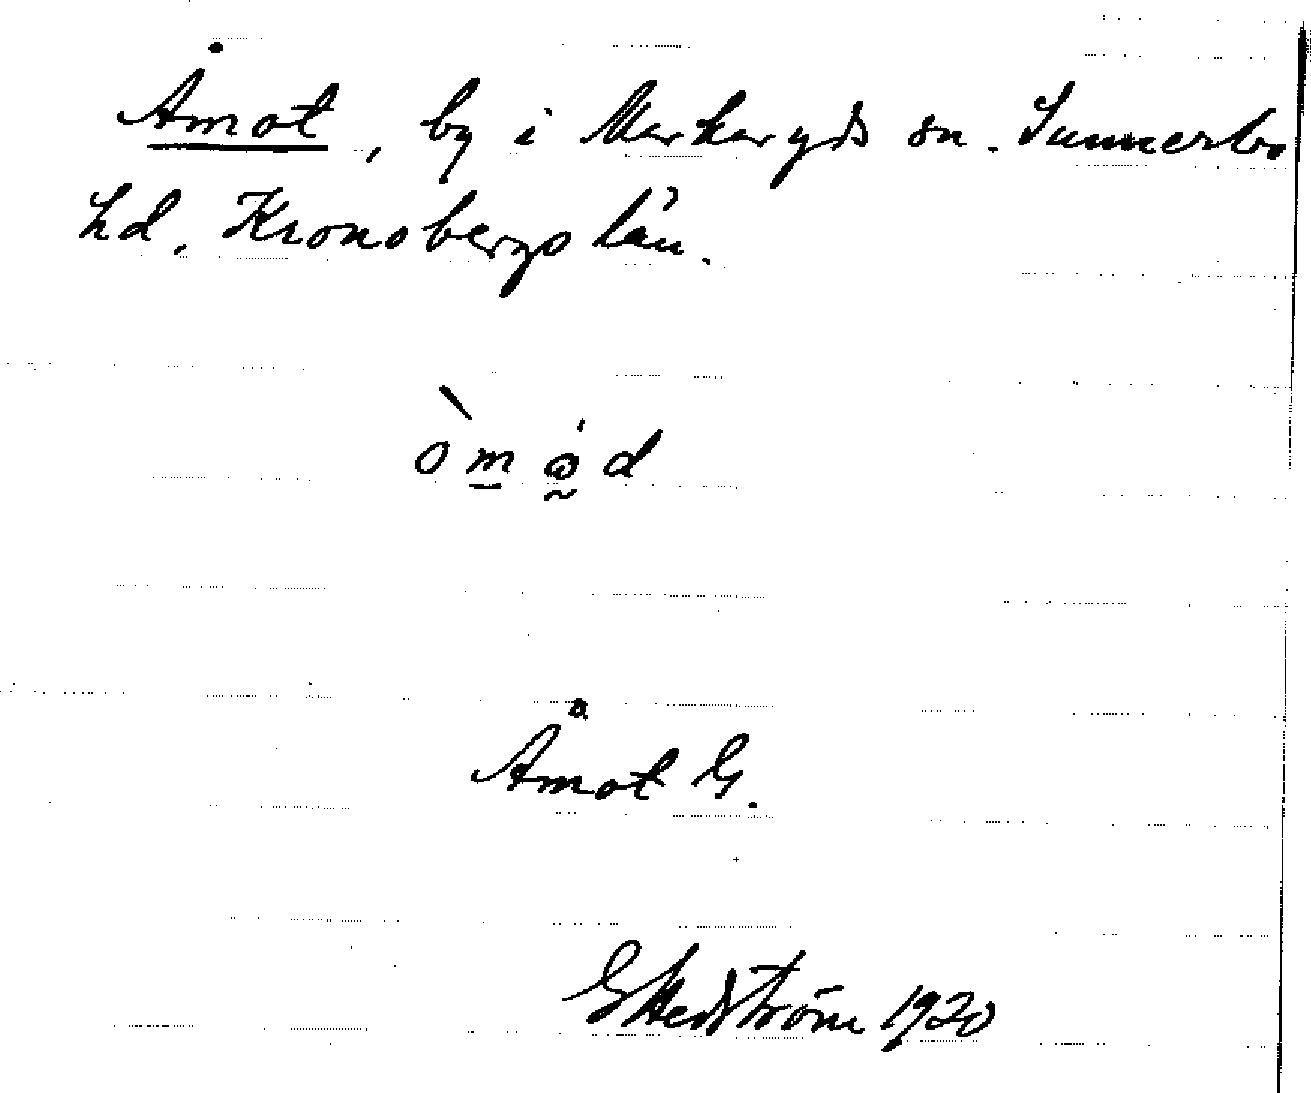 Åmot, by i Markaryds sn. Sunnerbo
hd. Kronobergs län.
òmo̰d
Åmot G.
G Hedström 1920